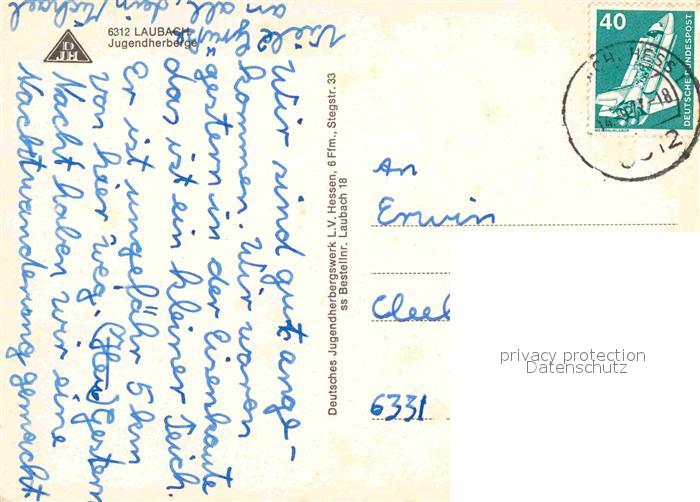 6312 LAUBACH
Jugendherberge
DJH
Wir sind gut ange-
kommen. Wir waren
gestern in der Eisenkaute
das ist ein kleiner Teich.
Er ist ungefähr 5 km
von hier weg. (Heu) Gestern
Nacht haben wir eine
Nachtwanderung gemacht
Viele
Grüße
an alle, dein Michael
Deutsches Jugendherbergswerk L.V. Hessen, 6 Ffm., Stegstr. 33
ss Bestellnr. Laubach 18
40
DEUTSCHE BUNDESPOST
An
Erwin
Cleeb
6331
privacy protection
Datenschutz